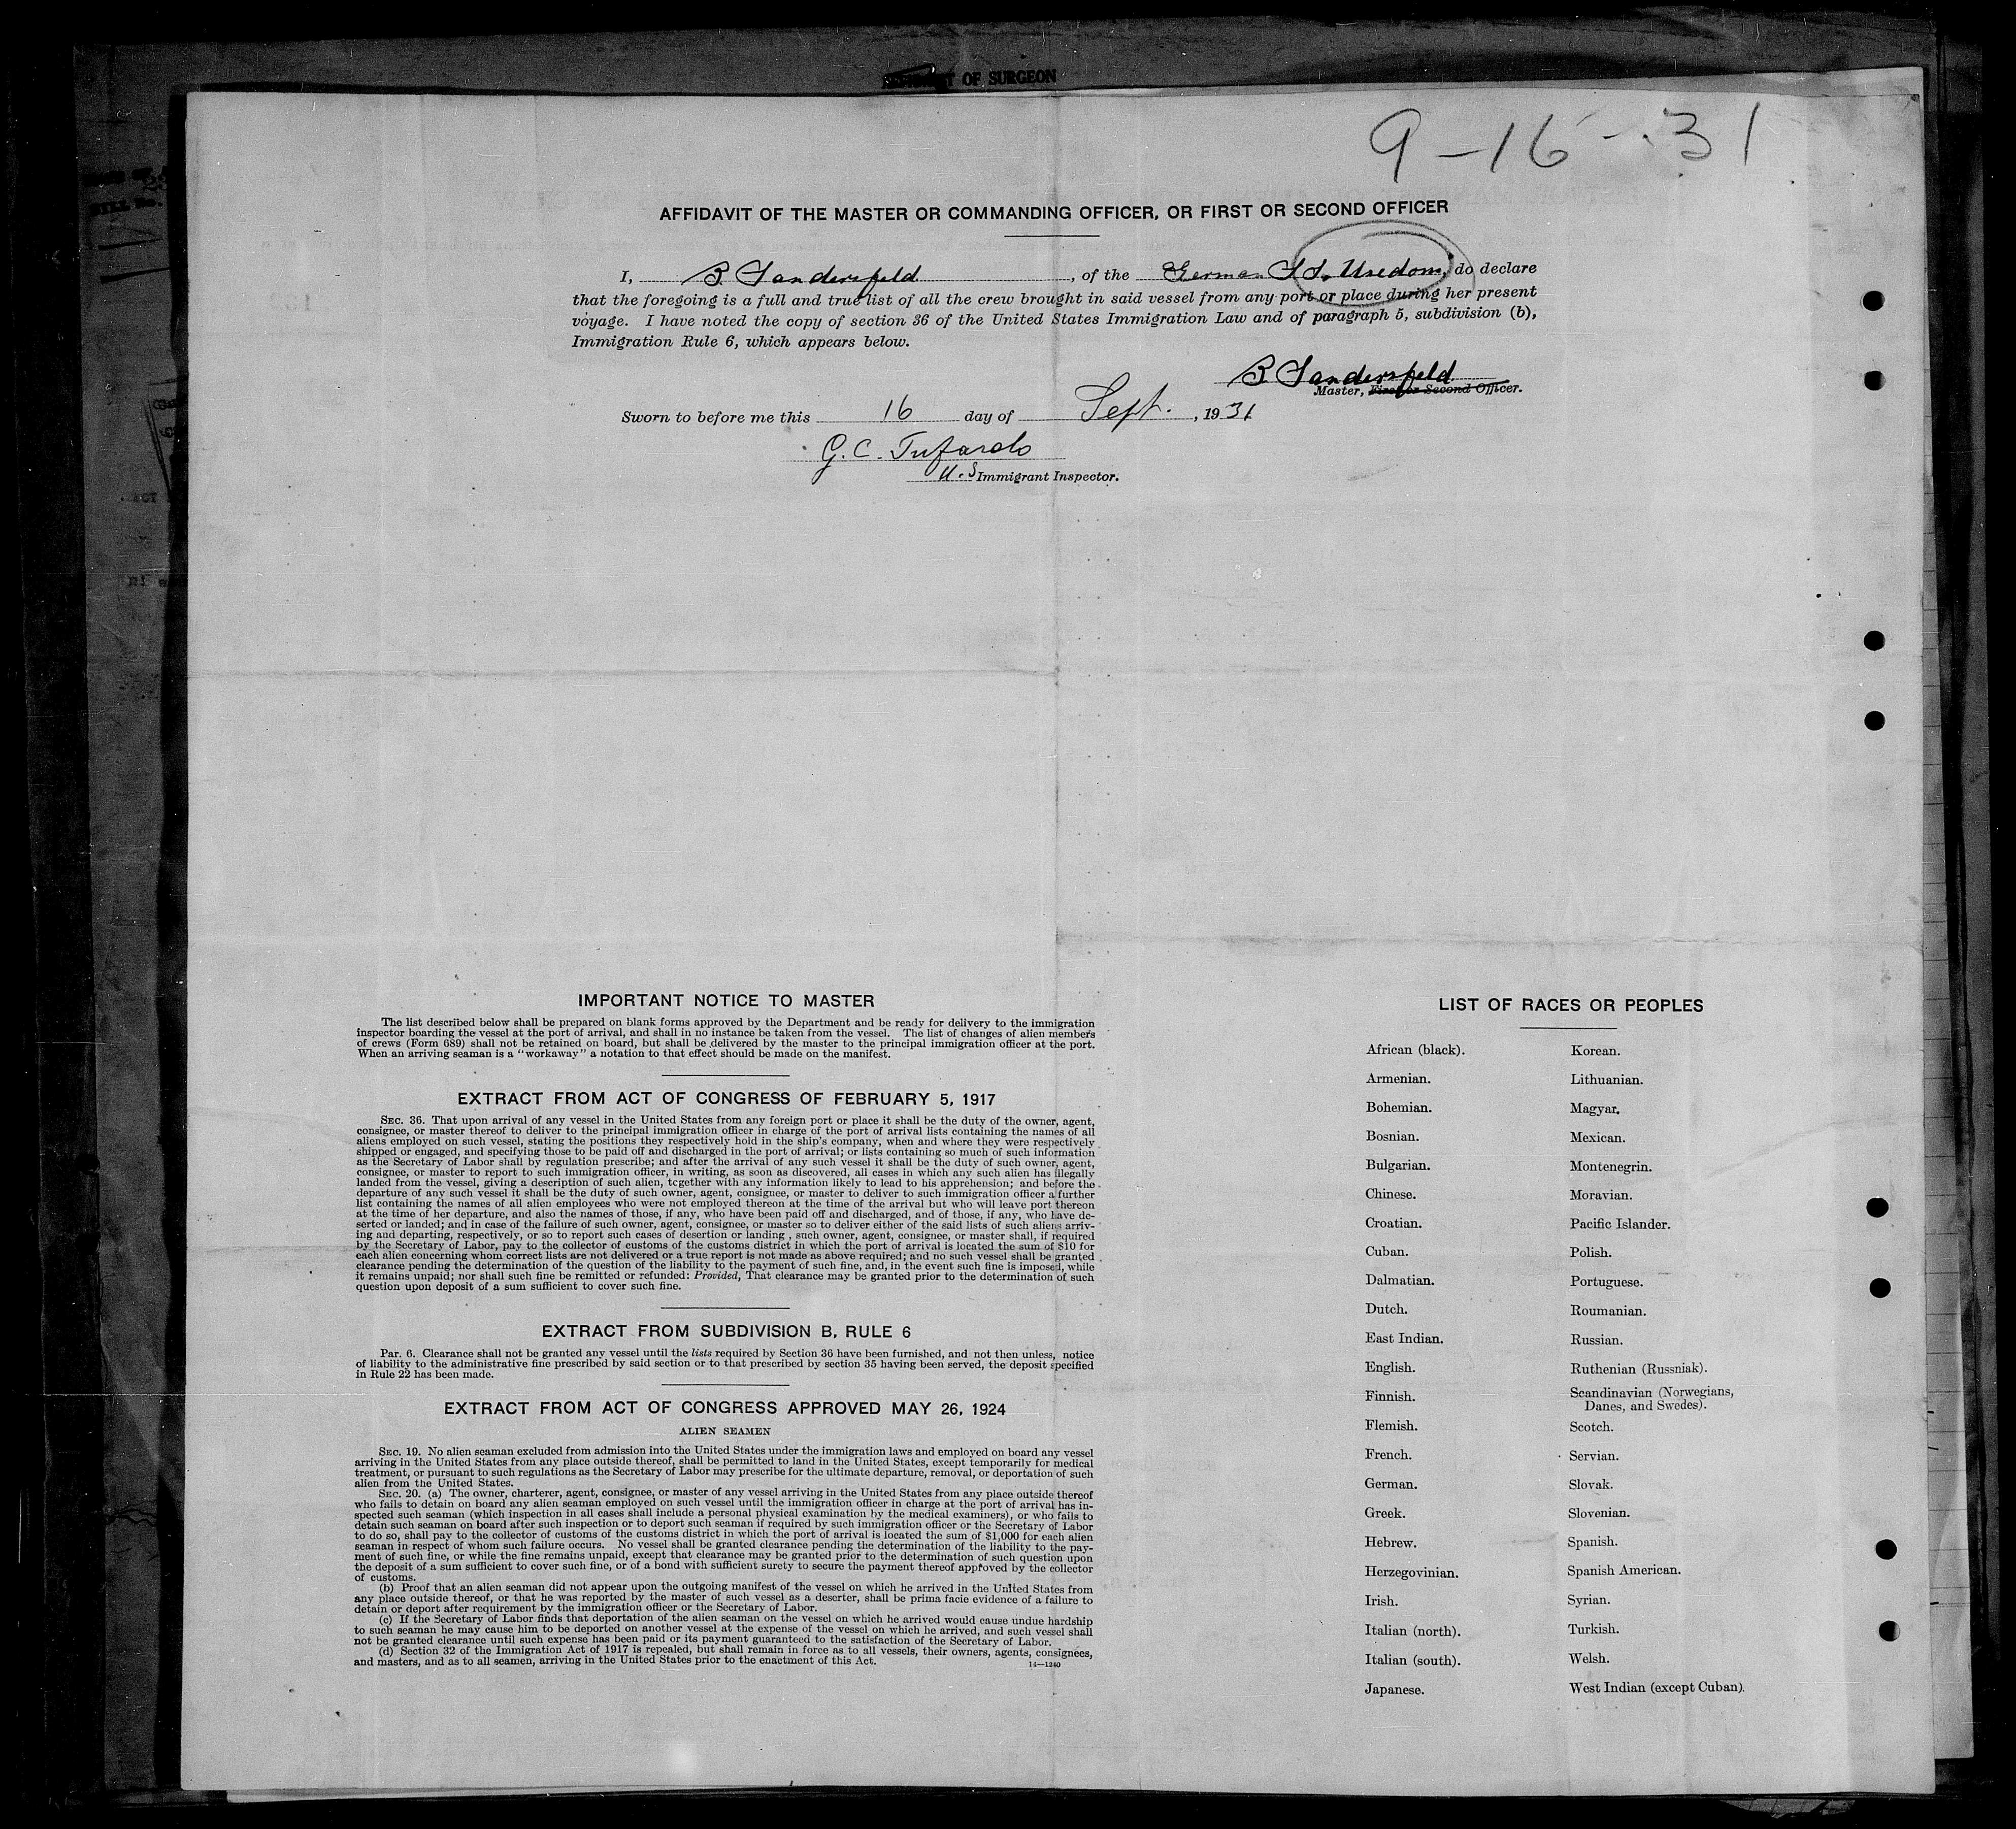 OF SURGEON
9-16-31
AFFIDAVIT OF THE MASTER OR COMMANDING OFFICER, OR FIRST OR SECOND OFFICER
I, B Sandersfeld, of the German S S. Usedom, do declare
that the foregoing is a full and true list of all the crew brought in said vessel from any port or place during her present
voyage. I have noted the copy of section 36 of the United States Immigration Law and of paragraph 5, subdivision (b),
Immigration Rule 6, which appears below.
B Sandersfeld
Master, First or Second Officer.
Sworn to before me this 16 day of Sept., 1931
G. C. Tufarolo
U.S Immigrant Inspector.
IMPORTANT NOTICE TO MASTER
The list described below shall be prepared on blank forms approved by the Department and be ready for delivery to the immigration
inspector boarding the vessel at the port of arrival, and shall in no instance be taken from the vessel. The list of changes of alien members
of crews (Form 689) shall not be retained on board, but shall be delivered by the master to the principal immigration officer at the port.
When an arriving seaman is a "workaway" a notation to that effect should be made on the manifest.
EXTRACT FROM ACT OF CONGRESS OF FEBRUARY 5, 1917
SEC. 36. That upon arrival of any vessel in the United States from any foreign port or place it shall be the duty of the owner, agent,
consignee, or master thereof to deliver to the principal immigration officer in charge of the port of arrival lists containing the names of all
aliens employed on such vessel, stating the positions they respectively hold in the ship's company, when and where they were respectively
shipped or engaged, and specifying those to be paid off and discharged in the port of arrival; or lists containing so much of such information
as the Secretary of Labor shall by regulation prescribe; and after the arrival of any such vessel it shall be the duty of such owner, agent,
consignee, or master to report to such immigration officer, in writing, as soon as discovered, all cases in which any such alien has illegally
landed from the vessel, giving a description of such alien, together with any information likely to lead to his apprehension; and before the
departure of any such vessel it shall be the duty of such owner, agent, consignee, or master to deliver to such immigration officer a further
list containing the names of all alien employees who were not employed thereon at the time of the arrival but who will leave port thereon
at the time of her departure, and also the names of those, if any, who have been paid off and discharged, and of those, if any, who have de-
serted or landed; and in case of the failure of such owner, agent, consignee, or master so to deliver either of the said lists of such aliens arriv-
ing and departing, respectively, or so to report such cases of desertion or landing , such owner, agent, consignee, or master shall, if required
by the Secretary of Labor, pay to the collector of customs of the customs district in which the port of arrival is located the sum of $10 for
each alien concerning whom correct lists are not delivered or a true report is not made as above required; and no such vessel shall be granted
clearance pending the determination of the question of the liability to the payment of such fine, and, in the event such fine is imposed, while
it remains unpaid; nor shall such fine be remitted or refunded: Provided, That clearance may be granted prior to the determination of such
question upon deposit of a sum sufficient to cover such fine.
EXTRACT FROM SUBDIVISION B, RULE 6
Par. 6. Clearance shall not be granted any vessel until the lists required by Section 36 have been furnished, and not then unless, notice
of liability to the administrative fine prescribed by said section or to that prescribed by section 35 having been served, the deposit specified
in Rule 22 has been made.
EXTRACT FROM ACT OF CONGRESS APPROVED MAY 26, 1924
ALIEN SEAMEN
SEC. 19. No alien seaman excluded from admission into the United States under the immigration laws and employed on board any vessel
arriving in the United States from any place outside thereof, shall be permitted to land in the United States, except temporarily for medical
treatment, or pursuant to such regulations as the Secretary of Labor may prescribe for the ultimate departure, removal, or deportation of such
alien from the United States.
SEC. 20. (a) The owner, charterer, agent, consignee, or master of any vessel arriving in the United States from any place outside thereof
who fails to detain on board any alien seaman employed on such vessel until the immigration officer in charge at the port of arrival has in-
spected such seaman (which inspection in all cases shall include a personal physical examination by the medical examiners), or who fails to
detain such seaman on board after such inspection or to deport such seaman if required by such immigration officer or the Secretary of Labor
to do so, shall pay to the collector of customs of the customs district in which the port of arrival is located the sum of $1,000 for each alien
seaman in respect of whom such failure occurs. No vessel shall be granted clearance pending the determination of the liability to the pay-
ment of such fine, or while the fine remains unpaid, except that clearance may be granted prior to the determination of such question upon
the deposit of a sum sufficient to cover such fine, or of a bond with sufficient surety to secure the payment thereof approved by the collector
of customs.
(b) Proof that an alien seaman did not appear upon the outgoing manifest of the vessel on which he arrived in the United States from
any place outside thereof, or that he was reported by the master of such vessel as a deserter, shall be prima facie evidence of a failure to
detain or deport after requirement by the immigration officer or the Secretary of Labor.
(c) If the Secretary of Labor finds that deportation of the alien seaman on the vessel on which he arrived would cause undue hardship
to such seaman he may cause him to be deported on another vessel at the expense of the vessel on which he arrived, and such vessel shall
not be granted clearance until such expense has been paid or its payment guaranteed to the satisfaction of the Secretary of Labor.
(d) Section 32 of the Immigration Act of 1917 is repealed, but shall remain in force as to all vessels, their owners, agents, consignees,
and masters, and as to all seamen, arriving in the United States prior to the enactment of this Act.
14—1240
LIST OF RACES OR PEOPLES
African (black).
Armenian.
Bohemian.
Bosnian.
Bulgarian.
Chinese.
Croatian.
Cuban.
Dalmatian.
Dutch.
East Indian.
English.
Finnish.
Flemish.
French.
German.
Greek.
Hebrew.
Herzegovinian.
Irish.
Italian (north).
Italian (south).
Japanese.
Korean.
Lithuanian.
Magyar.
Mexican.
Montenegrin.
Moravian.
Pacific Islander.
Polish.
Portuguese.
Roumanian.
Russian.
Ruthenian (Russniak).
Scandinavian (Norwegians,
Danes, and Swedes).
Scotch.
Servian.
Slovak.
Slovenian.
Spanish.
Spanish American.
Syrian.
Turkish.
Welsh.
West Indian (except Cuban).